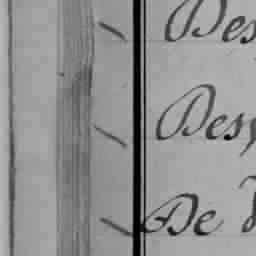 Des
Des
De